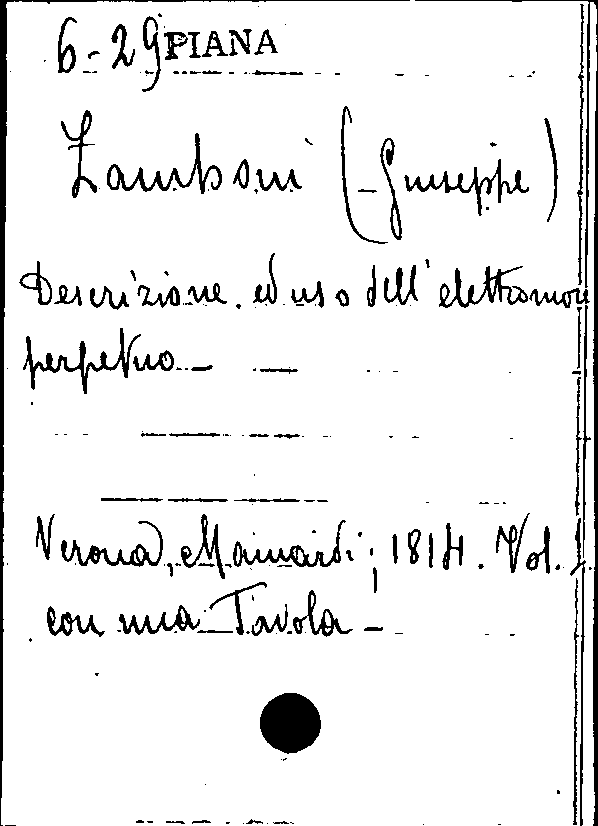 6-29 PIANA
Zamboni (-Giuseppe)
Descrizione. ed uso dell'elettromo
perpetuo-
Verona, Mainardi; 1814. Vol.
con una Tavola-